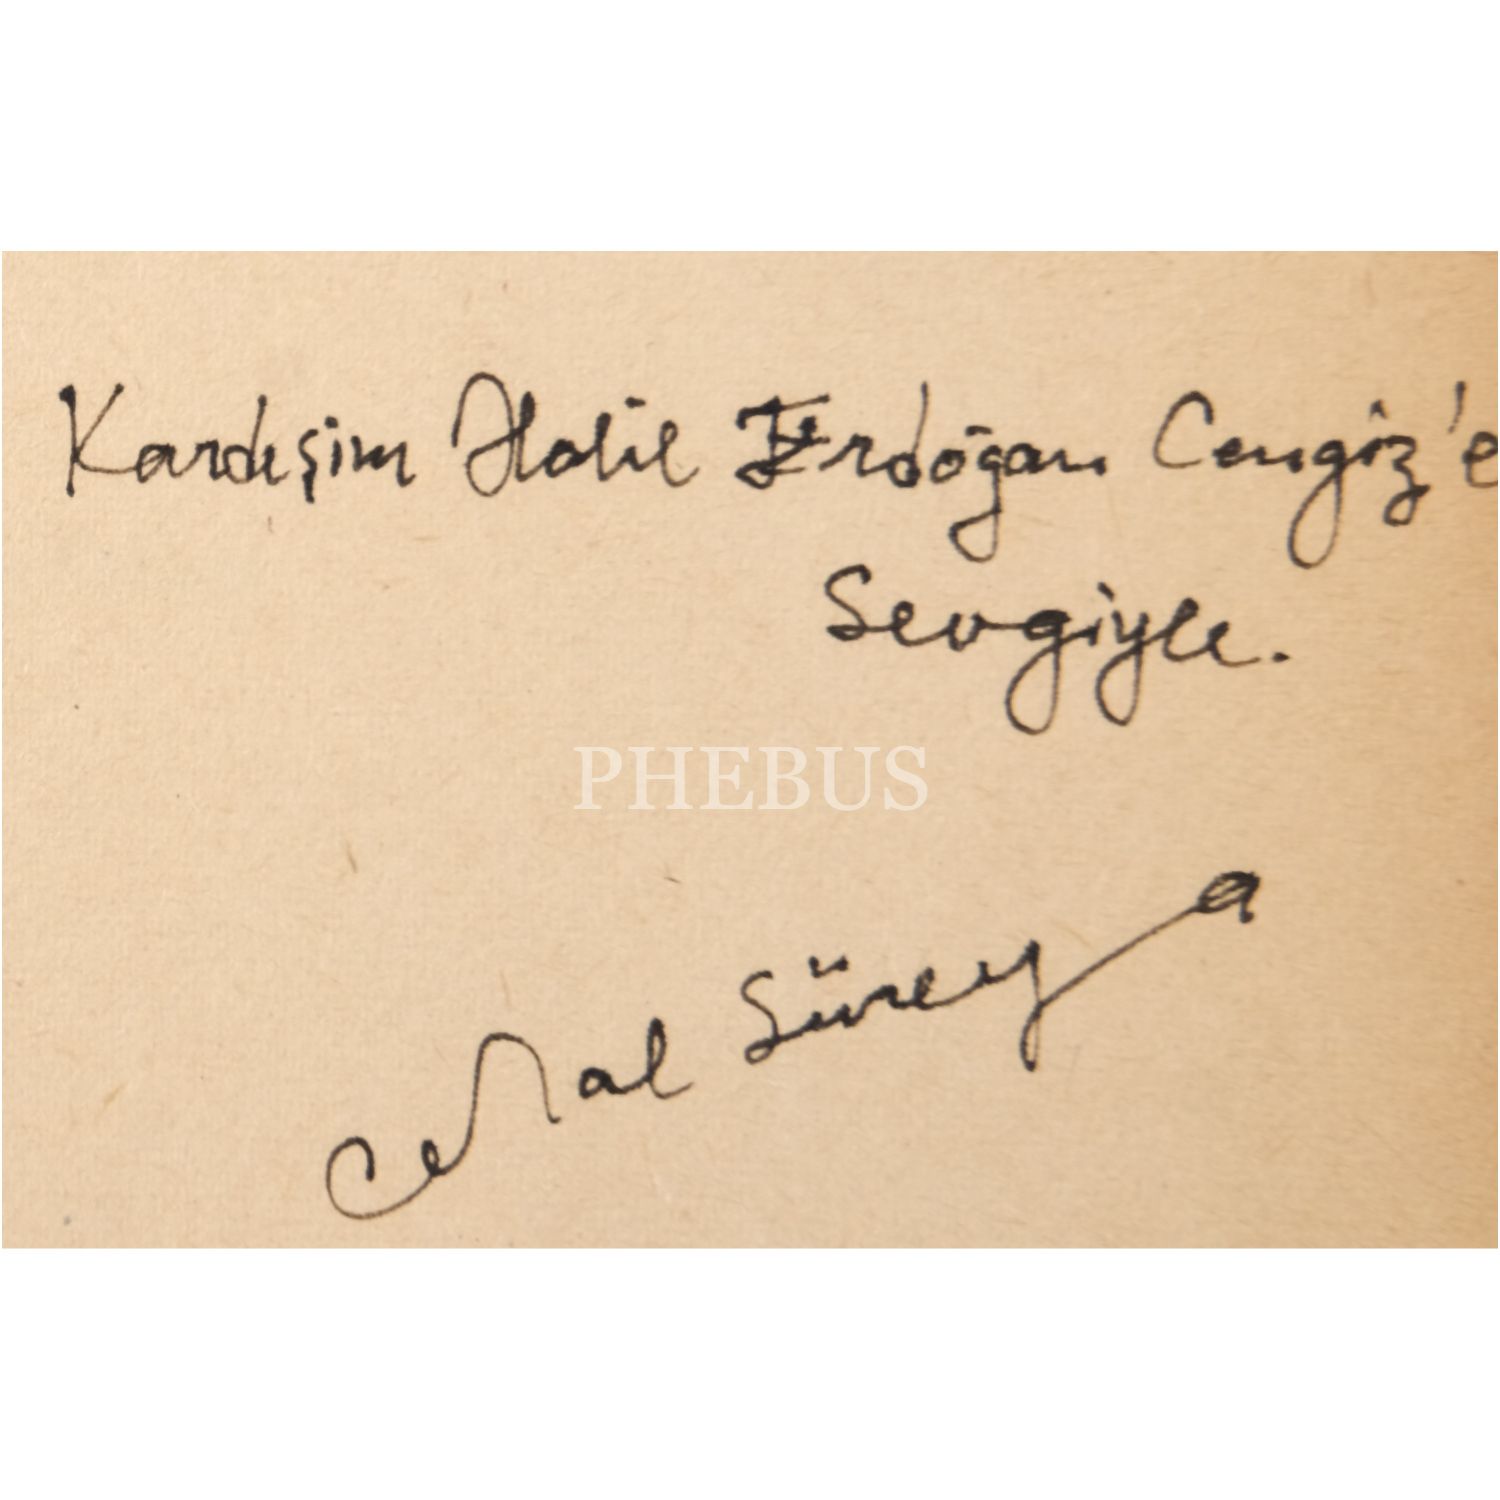 Kardeşim Halil Erdoğan Cengiz'e
Sevgiyle.
PHEBUS
Cemal Süreya